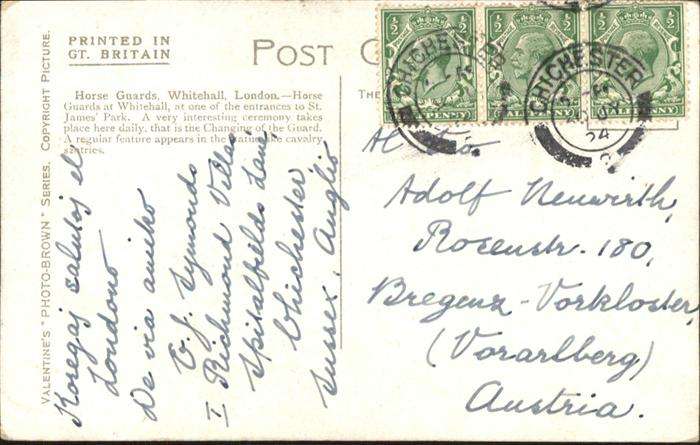 VALENTINE'S "PHOTO-BROWN" SERIES. COPYRIGHT PICTURE.
PRINTED IN
GT. BRITAIN
POST
Horse Guards, Whitehall, London.—Horse
Guards at Whitehall, at one of the entrances to St.
James' Park. A very interesting ceremony takes
place here daily, that is the Changing of the Guard.
A regular feature appears in the cavalry
sentries.
THE
½ ½
½ ½
½ ½
HALFPENNY
HALFPENNY
HALFPENNY
CHICHESTER
CHICHESTER
24
Koregaj salutoj el
Londono
De via amiko
G. J. Symonds
I Richmond Villas
Spitalfields Lane,
Chichester
Sussex, Anglio
Al
Adolf Neuwirth,
Rosenstr. 180,
Bregenz-Vorkloster
(Vorarlberg)
Austria.